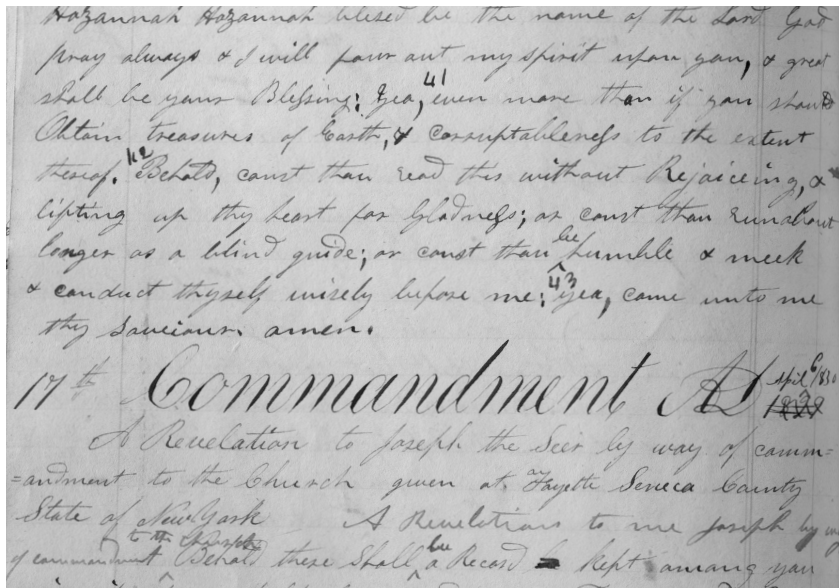 Hozannah Hozannah blesed be the name of the Lord God
pray always & I will pour out my spirit upon you, & great
shall be your Blessing; Yea, 41 even more than if you should
Obtain treasures of Earth, & corruptableness to the extent
thereof. 42 Behold, canst thou read this without Rejoiceing, &
lifting up thy heart for Gladness; or canst thou run about
longer as a blind guide; or canst thou be humble & meek
& conduct thyself wisely before me; 43 yea, come unto me
thy saveiour. amen.
17th Commandment AD April 6 1830
A Revelation to Joseph the Seer by way of comm=
=andment to the Church given at Fayette Seneca County
State of New York A Revelation to me Joseph by way
of commandment Behold there Shall be a Record kept among you